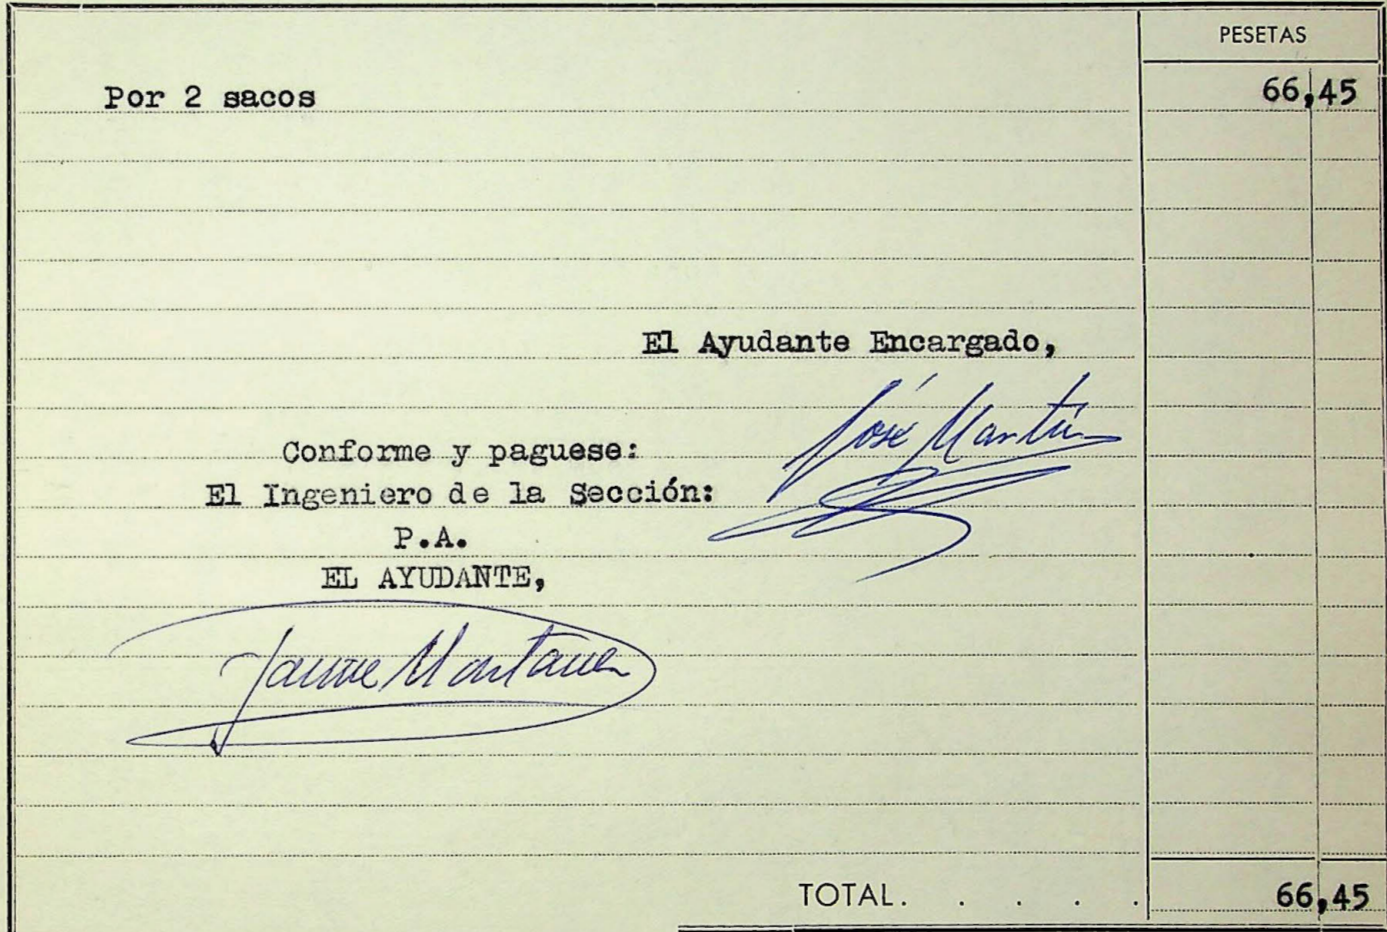 PESETAS
Por 2 sacos 66,45
El Ayudante Encargado,
José Martín
Conforme y paguese:
El Ingeniero de la Sección:
P.A.
EL AYUDANTE,
Jaume Montaner
TOTAL. . . . . 66,45